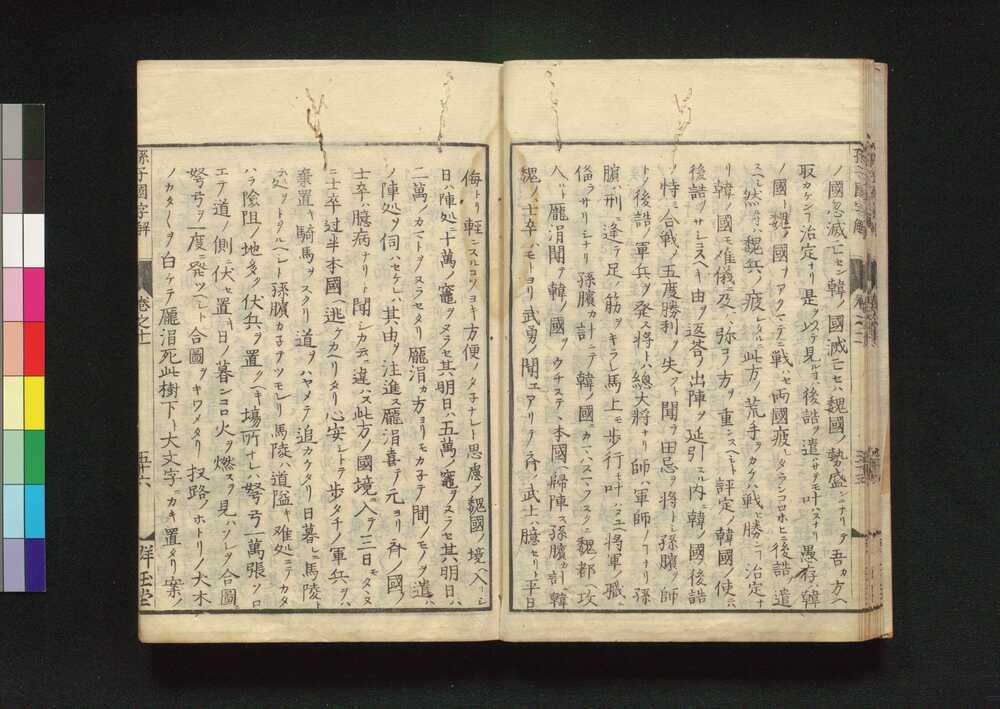 ノ國忽滅亡セン韓ノ國滅亡セハ魏國ノ勢盛ンニナリテ吾カ方ヘ
取カケンコ治定ナリ是ヲ以テ見ルニ後詰ヲ遣ハサテ叶ハスナリ愚存韓
ノ國ト魏ノ國ヲアクマテニ戰ハセ兩國疲レタランコロホヒニ後詰ヲ遣
スヘシ然ラハ魏兵ノ疲レタルニ此方ノ荒手ヲカケハ戰ヒ勝ンコ治定ナ
リ韓ノ國モ難儀ニ及ハ弥ヨ方ヲ重ニスヘシト評定シ韓國ノ使ニハ
後詰ヲサレヘキ由ヲ返答シ出陣ヲ延引スル内ニ韓ノ國後詰
ヲ恃ミ合戰シ五度勝利ヲ失フト聞テ田忌ヲ將トシ孫臏ヲ師
トシ後詰ノ軍兵ヲ発ス將トハ総大將ナリ師ハ軍師ノコナリ孫
臏ハ刑ニ逢テ足ノ筋ヲキラレ馬上モ歩行モ叶ハヌユヘ將軍ノ職ニ
備ラサリシナリ孫臏カ計ニテ韓ノ國ヘハカマハス直クニ魏ノ都ヘ攻
入ル龐涓聞テ韓ノ國ヲウチステ本國ヘ歸陣ス孫臏カ計ニ韓
魏ノ士卒ハモトヨリ武勇ノ聞エアリテ斉ノ武士ハ臆セリト平日
侮トリ輕ニスルコヨキ方便ノタ子ナレト思慮シ魏國ノ境ヘ入リシ
日ハ陣処ニ十萬ノ竈ヲヌラセ其明日ハ五萬ノ竈ヲヌラセ其明日ハ
二萬ノカマトヲヌラセタリ龐涓カ方ヨリモカ子テ間ノモノヲ遣ハシ
ノ陣処ヲ伺ハセケレハ其由ヲ注進ス龐涓喜テ元ヨリ斉ノ國ノ
士卒ハ臆病ナリト聞シカ云ニ違ハス此方ノ國境ニ入テ三日モタヽヌ
ニ士卒過半本國ヘ逃ケカヘリタリ心安シトテ歩タチノ軍兵ヲハ
棄置キ騎馬ヲスクリ道ヲハヤメテ追カケタリ日暮レニ馬陵ト
云処ヲトヲルヘシト孫臏カ子テツモレリ馬陵ハ道隘キ難処ニテカタ
ハラ陰阻ノ地多ク伏兵ヲ置クヘキ塲所ナレハ弩弓一萬張ソロ
エテ道ノ側ニ伏セ置キ日ノ暮ンコロ火ヲ燃スヲ見ハソレヲ合圖ニ
弩弓ヲ一度ニ発ツヘシト合圖ヲキワメタリ扨路ノホトリノ大木
ノカタ〳〵ヲ白ケテ龐涓死此樹下ト大文字ニカキ置タリ案ノ
孫子國字解
卷之十
五十六